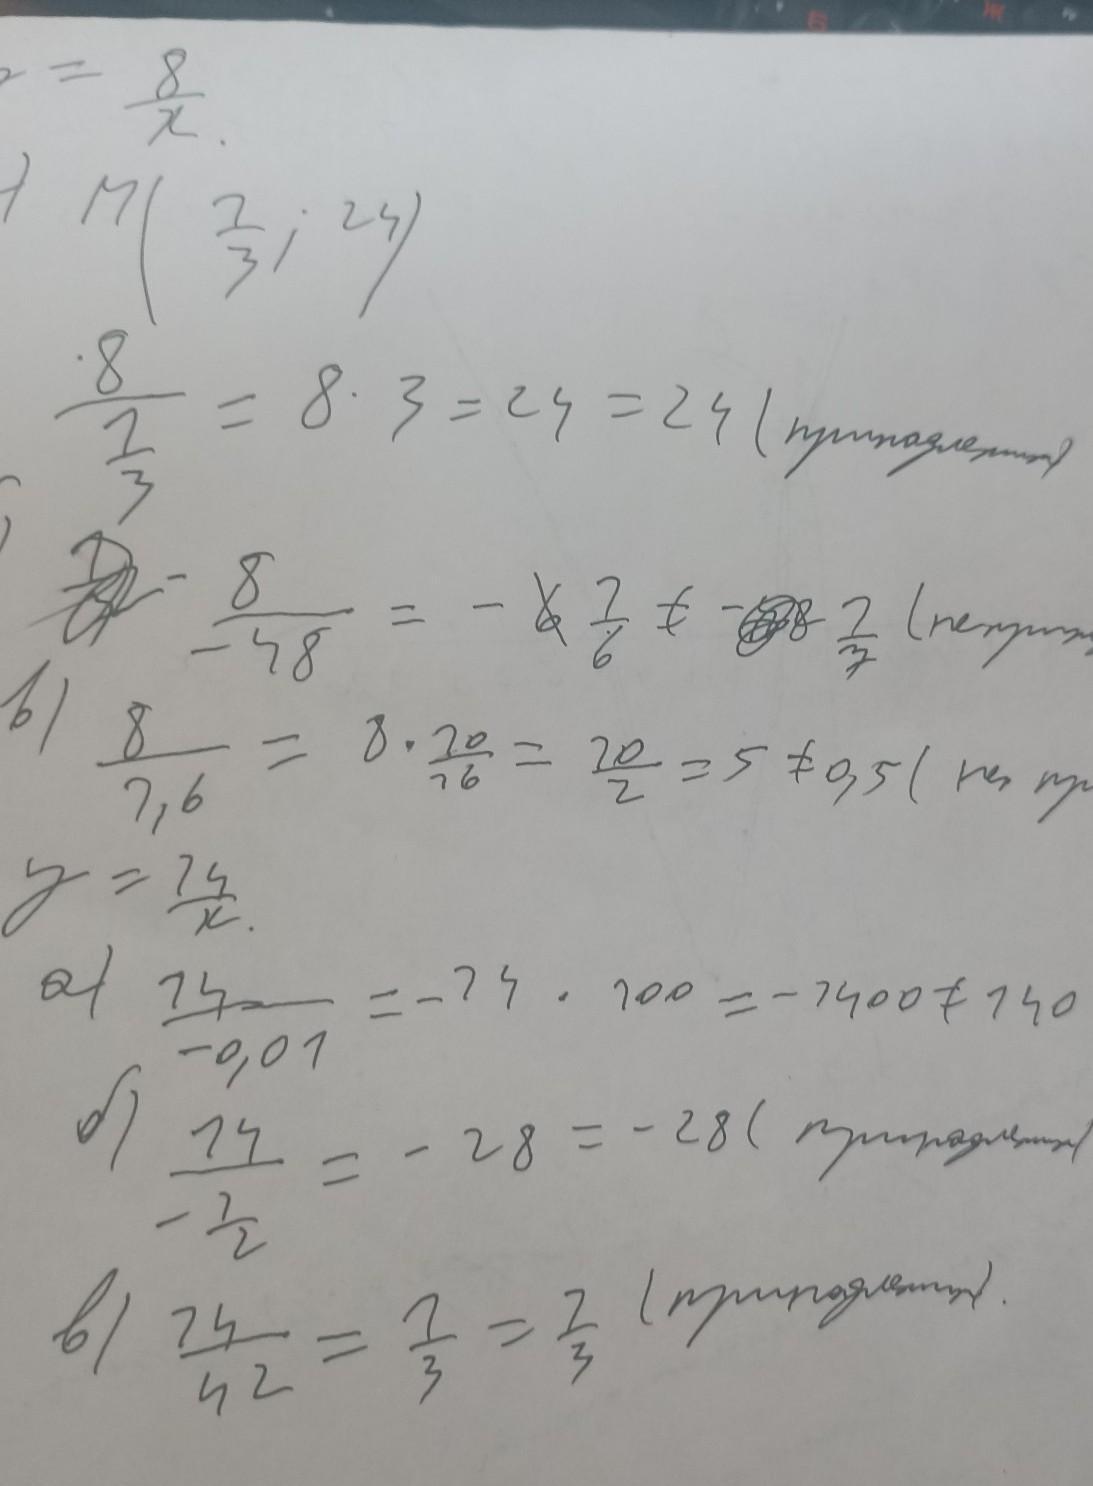 = 8/x.
M(1/3; 24)
8/(1/3) = 8 · 3 = 24 = 24 (принадлежит)
- 8/-48 = - 1/6 ≠ - 1/7 (неприн
в) 8/1,6 = 8 · 10/16 = 10/2 = 5 ≠ 0,5 (не пр
y = 14/x.
а) 14/-0,01 = -14 · 100 = -1400 ≠ 140
б) 14/(-1/2) = - 28 = - 28 (принадлежит)
в) 14/42 = 1/3 = 1/3 (принадлежит).